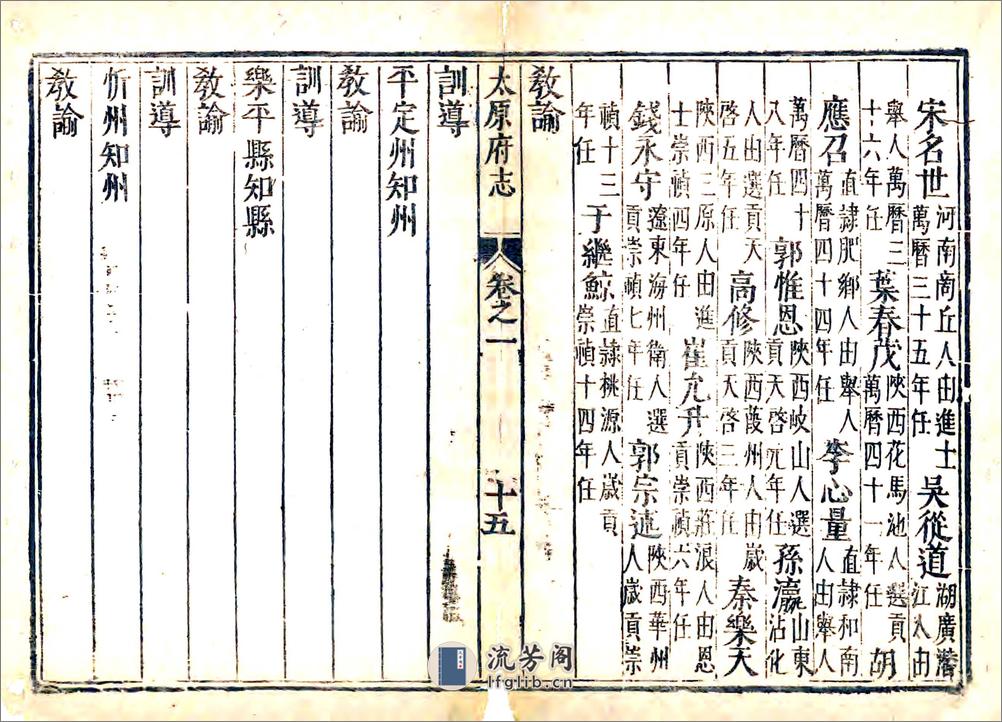 宋名世河南商丘人由進士萬曆三十五年任吳從道湖廣潛江人由
舉人萬曆三十六年任葉春茂陝西花馬池人選貢萬曆四十一年任胡
應召直隷肥鄉人由舉人萬曆四十四年任李心量直隷和南人由舉人
萬曆四十八年任郭惟恩陝西岐山人選貢天啓元年任孫瀛山東沾化
人由選貢天啓五年任高修陝西葭州人由歲貢天啓三年任秦樂天
陝西三原人由進士崇禎四年任崔允升陝西莊浪人由恩貢崇禎六年任
錢永守遼東海州衛人選貢崇禎七年任郭宗述陝西華州人歲貢崇
禎十三年任于繼鯨直隷桃源人歲貢崇禎十四年任
教諭
太原府志 卷之一 十五
訓導
平定州知州
教諭
訓導
樂平縣知縣
教諭
訓導
忻州知州
教諭
流芳阁
lfglib.cn